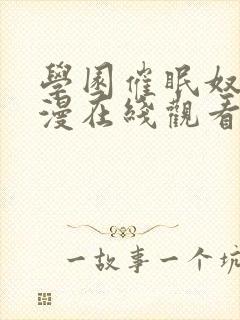 學園催眠奴
漫在綫觀看
一故事一个坑